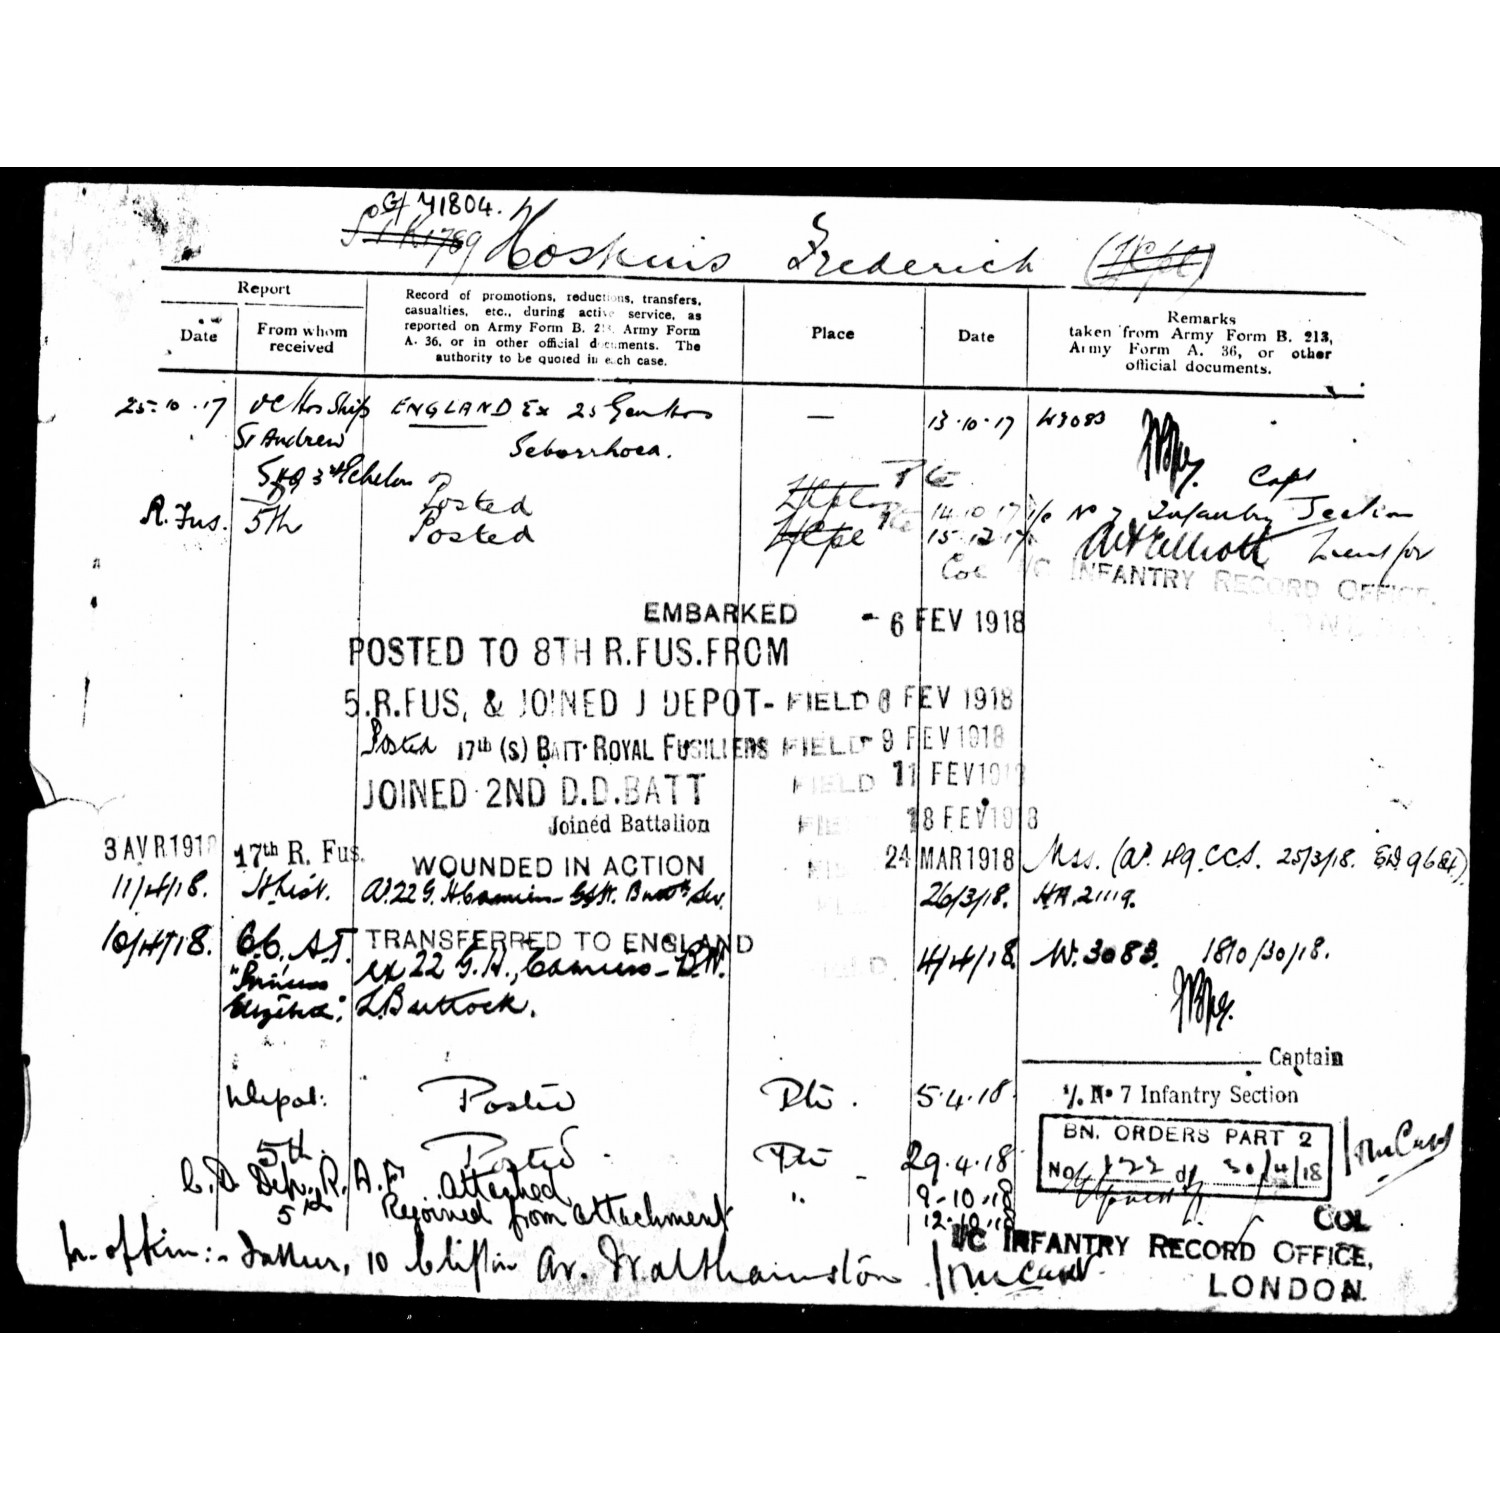 G/ 71804.
Hoskins Frederick (L/Cpl)
Report
Date
From whom received
Record of promotions, reductions, transfers,
casualties, etc., during active service, as
reported on Army Form B. 213, Army Form
A. 36, or in other official documents. The
authority to be quoted in each case.
Place
Date
Remarks
taken from Army Form B. 213,
Army Form A. 36, or other
official documents.
25-10-17 OC Hos Ship ENGLAND Ex 25 Gen Hos — 13-10-17 W3083
St Andrew Seborrhoea.
3rd Echelon Capt
Posted L/Cpl Pte 14-10-17 i/c No 7 Infantry Section
R. Fus. 5th Posted L/Cpl Pte 15-12-17
Col I/C INFANTRY RECORD OFFICE,
LONDON
EMBARKED - 6 FEV 1918
POSTED TO 8TH R.FUS.FROM
5.R.FUS, & JOINED J DEPOT- FIELD 8 FEV 1918
Posted 17th (S) BATT. ROYAL FUSILIERS FIELD 9 FEV 1918
JOINED 2ND D.D.BATT FIELD 11 FEV 1918
Joined Battalion FIELD 18 FEV 1918
3 AVR 1918 17th R. Fus. WOUNDED IN ACTION FIELD 24 MAR 1918 25/3/18.
11/4/18. H. List. Ad. 22 G. H. Camiers 26/3/18. HA. 21119.
10/4/18. O.C. A.T. TRANSFERRED TO ENGLAND FIELD 4/4/18. W. 3083. 1810/30/18.
"Princess ex 22 G.H., Camiers -
Elizabeth". L. Buttock.
Captain
Depot. Posted Pte. 5.4.18. i/c No 7 Infantry Section
5th. Posted Pte 29.4.18.
BN. ORDERS PART 2
No. 122 of 30/4/18
C.D Dep. R.A.F. Attached " 9-10-18
5th Rejoined from attachment 12-10-18
COL
I/C INFANTRY RECORD OFFICE,
LONDON.
n. of kin:- Father, 10 Clifton Av. Walthamstow